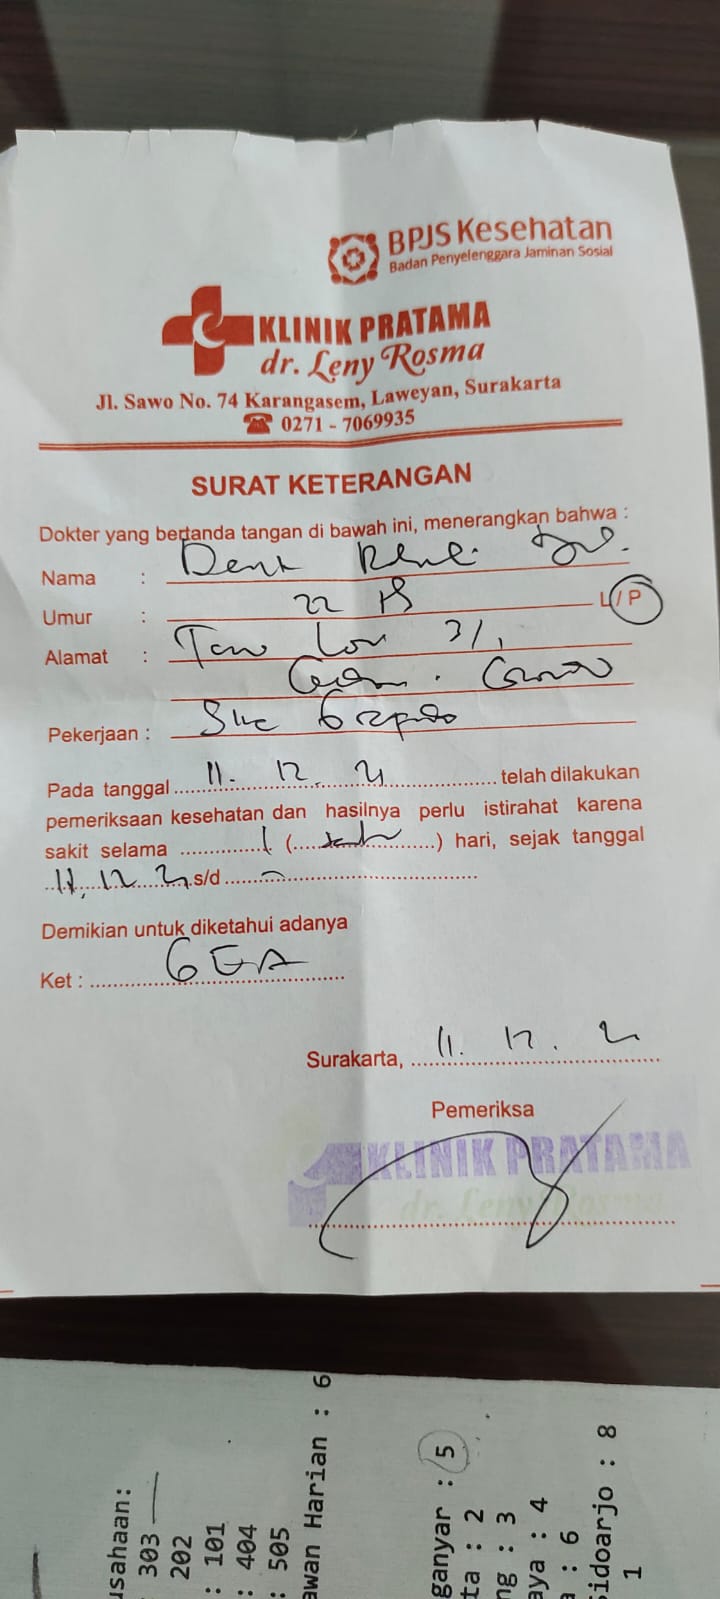 BPJS Kesehatan
Badan Penyelenggara Jaminan Sosial
KLINIK PRATAMA
dr. Leny Rosma
Jl. Sawo No. 74 Karangasem, Laweyan, Surakarta
☎ 0271 - 7069935
SURAT KETERANGAN
Dokter yang bertanda tangan di bawah ini, menerangkan bahwa :
Nama :
Umur : 22 L/P
Alamat :
Pekerjaan :
Pada tanggal 11. 12. 21 telah dilakukan
pemeriksaan kesehatan dan hasilnya perlu istirahat karena
sakit selama 1 (..........) hari, sejak tanggal
11, 12 21 s/d -
Demikian untuk diketahui adanya
Ket : GEA
Surakarta, 11. 12. 21
Pemeriksa
KLINIK PRATAMA
dr. Leny Rosma
usahaan:
303
202
: 101
: 404
: 505
awan Harian : 6
ganyar : 5
ta : 2
ng : 3
aya : 4
a : 6
Sidoarjo : 8
1